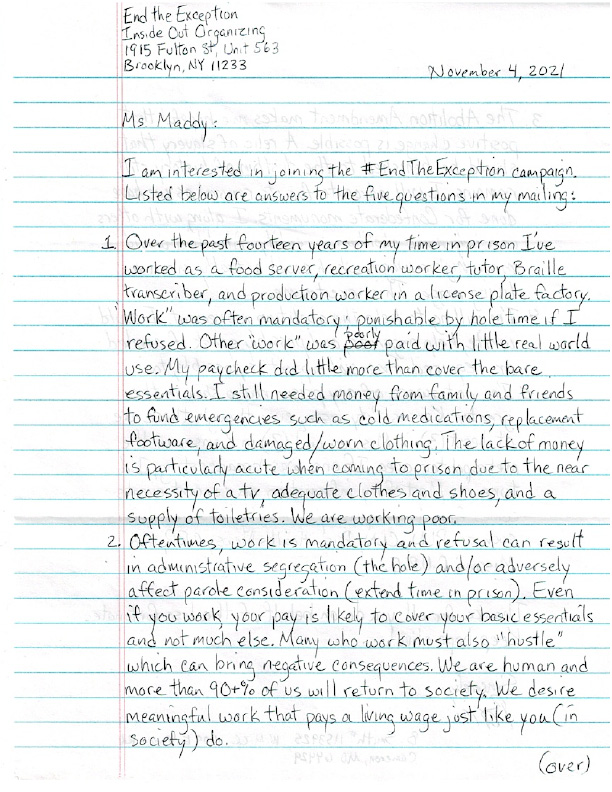 End the Exception
Inside Out Organizing
1915 Fulton St, Unit 563
Brooklyn, NY 11233
November 4, 2021
Ms Maddy:
I am interested in joining the #EndTheException campaign.
Listed below are answers to the five questions in my mailing:
1. Over the past fourteen years of my time in prison I've
worked as a food server, recreation worker, tutor, Braille
transcriber, and production worker in a license plate factory.
"Work" was often mandatory; punishable by hole time if I
refused. Other "work" was poor poorly paid with little real world
use. My paycheck did little more than cover the bare
essentials. I still needed money from family and friends
to fund emergencies such as cold medications, replacement
footware, and damaged/worn clothing. The lack of money
is particularly acute when coming to prison due to the near
necessity of a tv, adequate clothes and shoes, and a
supply of toiletries. We are working poor.
2. Oftentimes, work is mandatory and refusal can result
in administrative segregation (the hole) and/or adversely
affect parole consideration (extend time in prison). Even
if you work, your pay is likely to cover your basic essentials
and not much else. Many who work must also "hustle"
which can bring negative consequences. We are human and
more than 90+% of us will return to society. We desire
meaningful work that pays a living wage just like you (in
society) do.
(over)